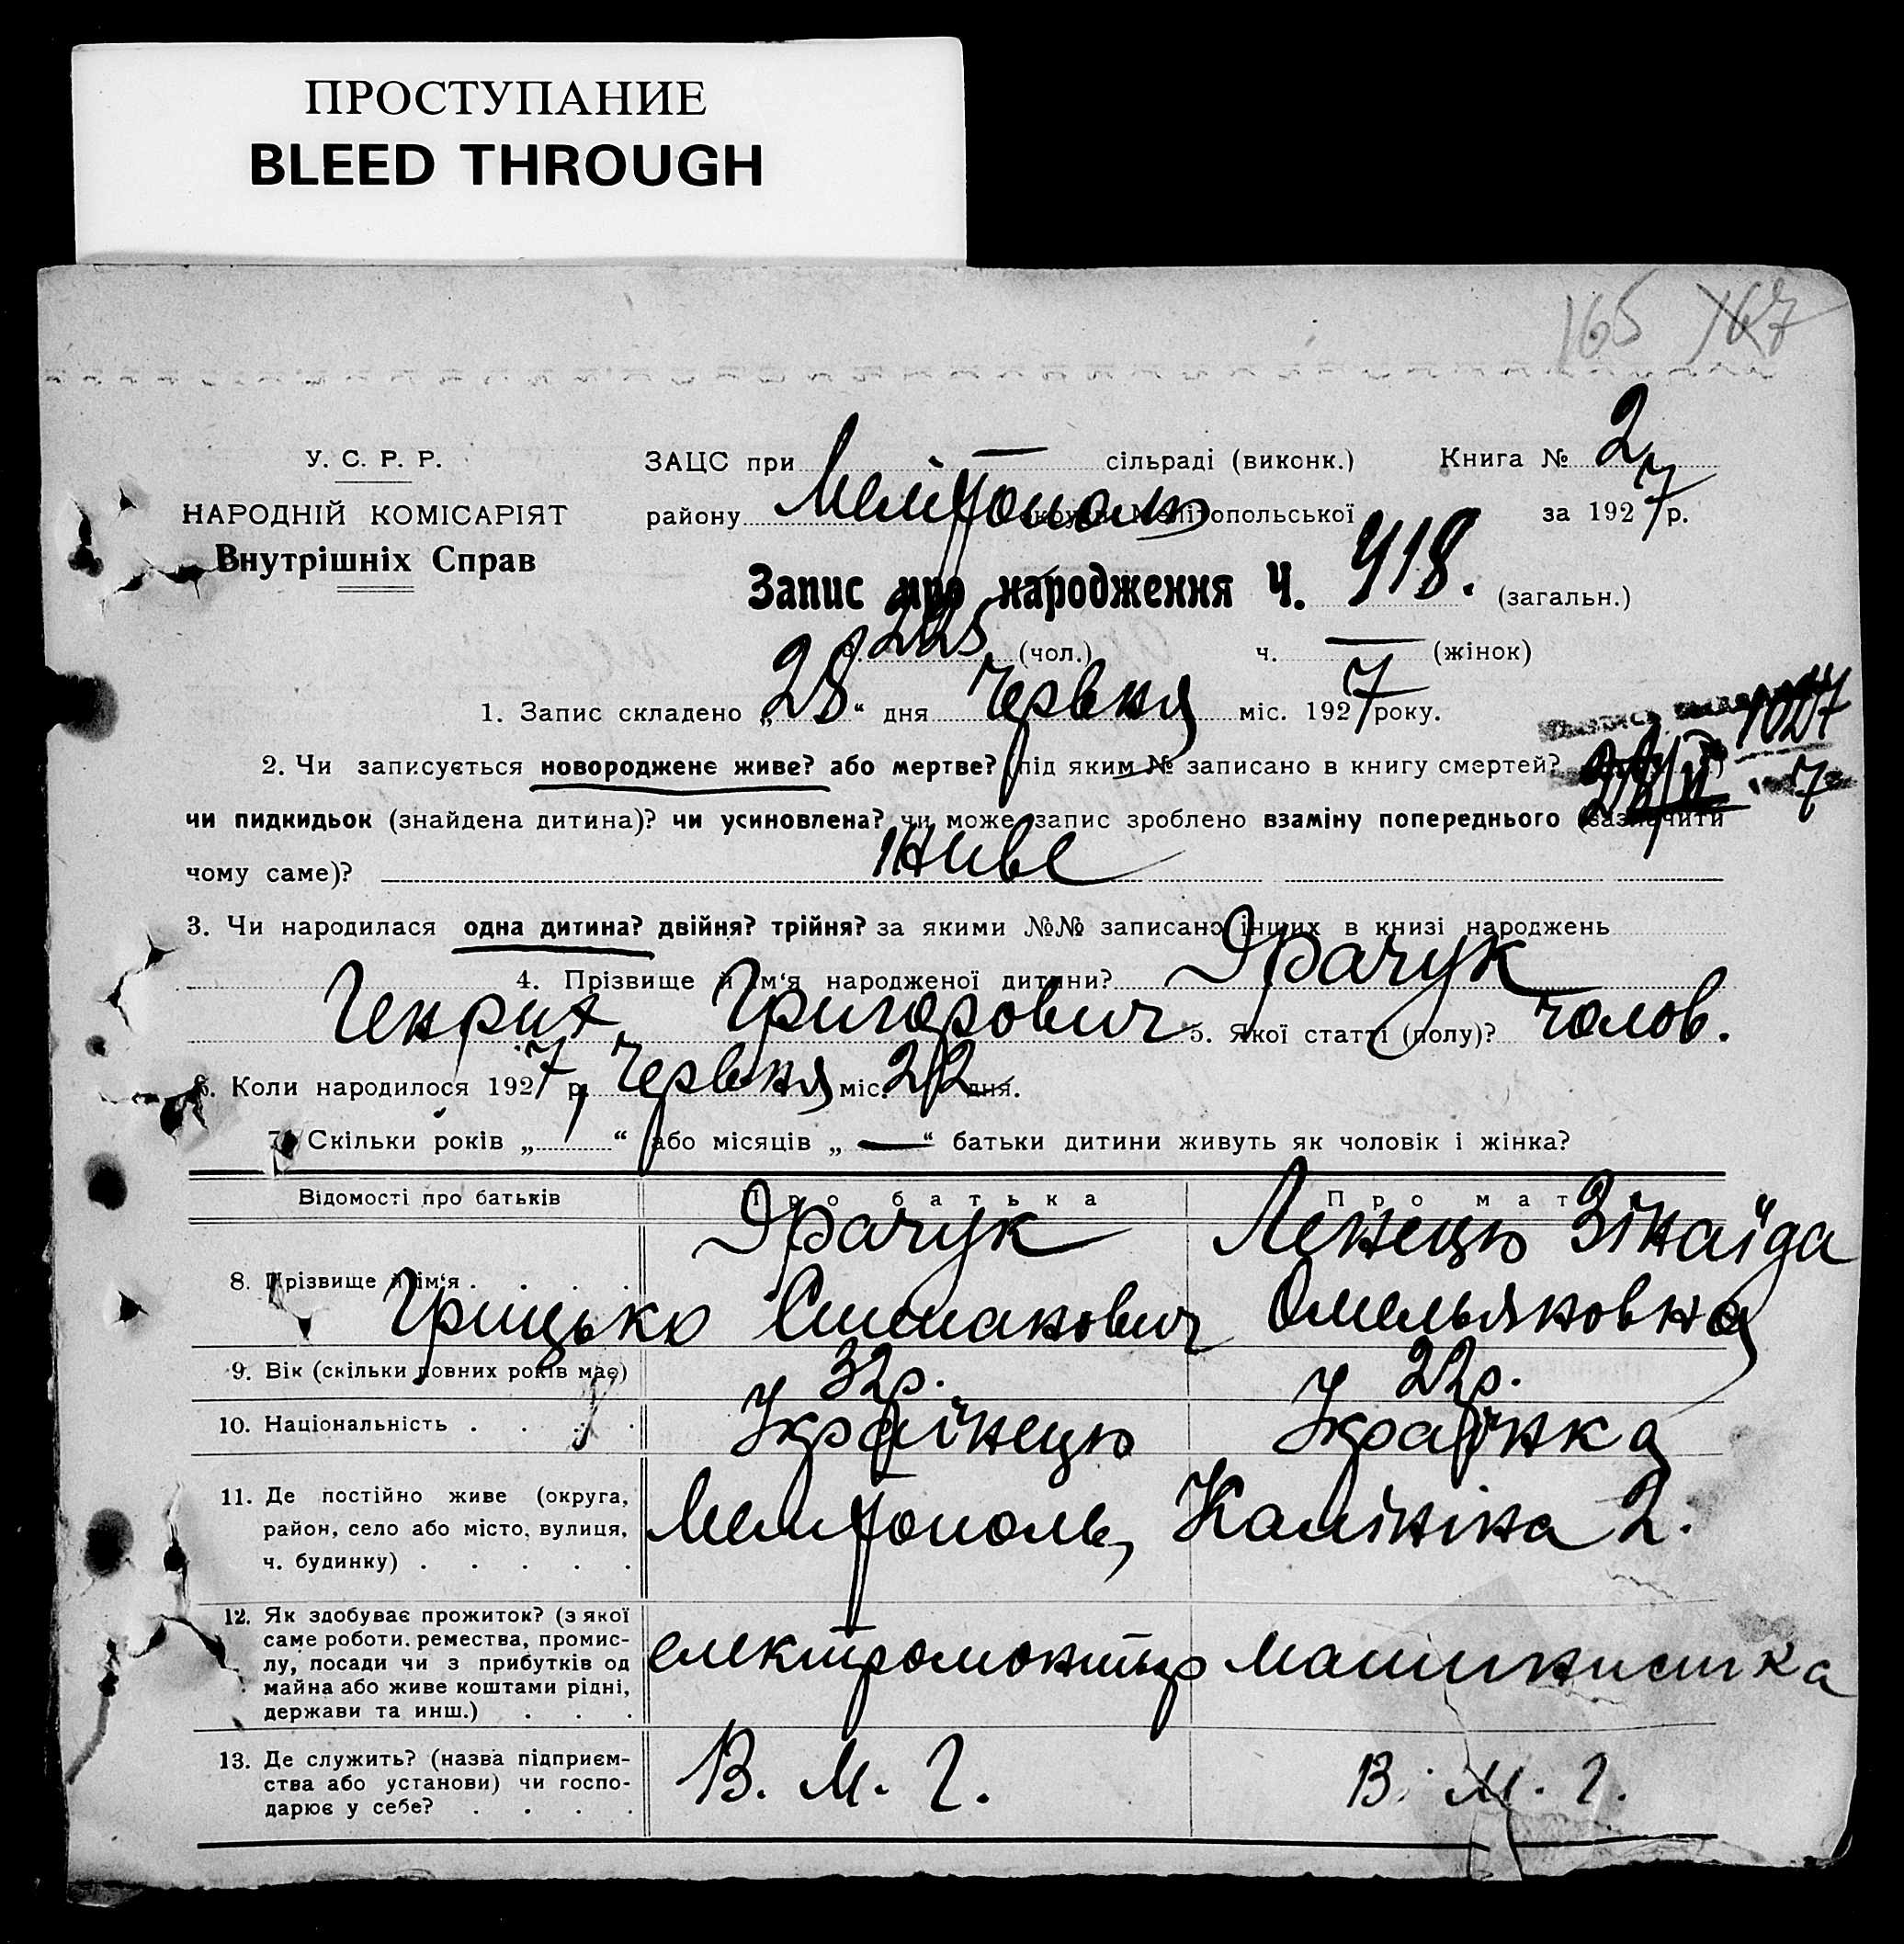 ПРОСТУПАНИЕ
BLEED THROUGH
165 167
У. С. Р. Р.
НАРОДНІЙ КОМІСАРІЯТ
Внутрішніх Справ
ЗАЦС при — сільраді (виконк.) Книга № 2
району Мелітополь округи Мелітопольської за 1927 р.
Запис про народження Ч. 418. (загальн.)
ч. 225 (чол.) ч. — (жінок)
1. Запис складено „28“ дня Червня міс. 1927 року.
2. Чи записується новороджене живе? або мертве? (під яким № записано в книгу смертей?
чи пидкидьок (знайдена дитина)? чи усиновлена? чи може запис зроблено взаміну попереднього (зазначити
чому саме)? живе
3. Чи народилася одна дитина? двійня? трійня? за якими №№ записано інших в книзі народжень
4. Прізвище й ім‘я народженої дитини? Драчук
Генрих Григорович 5. Якої статті (полу)? Чолов.
6. Коли народилося 1927 р. Червня міс. 22 дня.
7. Скільки років „1“ або місяців „—“ батьки дитини живуть як чоловік і жінка?
Відомості про батьків Про батька Про мат
8. Прізвище й ім‘я . . . . Драчук Ленець Зінаїда
Грицько Симакович Омельяновна
9. Вік (скільки повних років має) 32р. 22р.
10. Національність . . . . Українець Українка
11. Де постійно живе (округа,
район, село або місто, вулиця,
ч. будинку) . . . . .
Мелітополь, Калініна 2.
12. Як здобуває прожиток? (з якої
саме роботи, ремества, промис-
лу, посади чи з прибутків од
майна або живе коштами рідні,
держави та инш.) . . .
електромонтьор машинистка
13. Де служить? (назва підприєм-
ства або установи) чи госпо-
дарює у себе? . . . .
В. М. Г. В. М. Г.